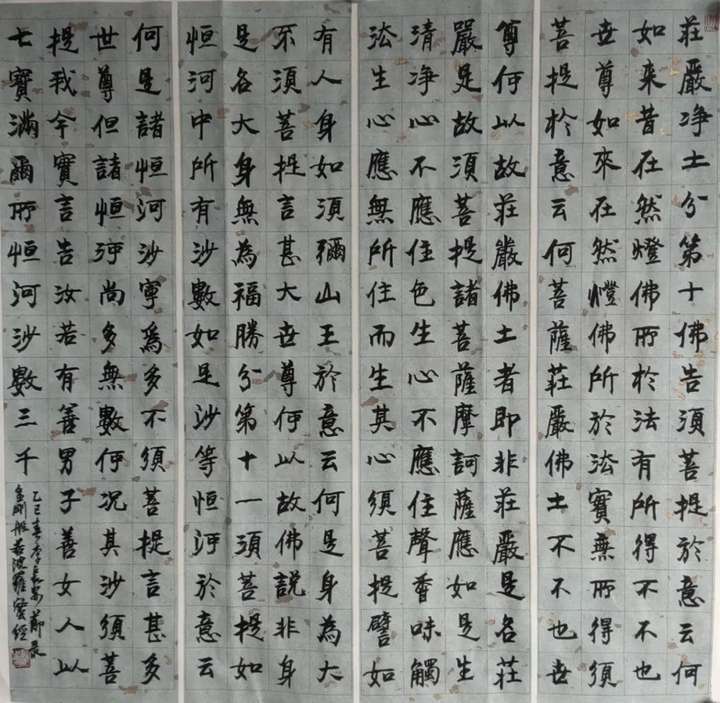 莊嚴净土分第十佛告須菩提於意云何
如来昔在然燈佛所於法有所得不不也
世尊如來在然燈佛所於法實無所得須
菩提於意云何菩薩莊嚴佛土不不也世
尊何以故莊嚴佛土者即非莊嚴是名莊
嚴是故須菩提諸菩薩摩訶薩應如是生
清净心不應住色生心不應住聲香味觸
法生心應無所住而生其心須菩提譬如
有人身如須彌山王於意云何是身為大
不須菩提言甚大世尊何以故佛說非身
是名大身無為福勝分第十一須菩提如
恒河中所有沙數如是沙等恒河於意云
何是諸恒河沙寧爲多不須菩提言甚多
世尊但諸恒河尚多無數何况其沙須菩
提我今實言告汝若有善男子善女人以
七寶滿爾所恒河沙數三千
乙巳春節录
金剛般若波羅蜜經